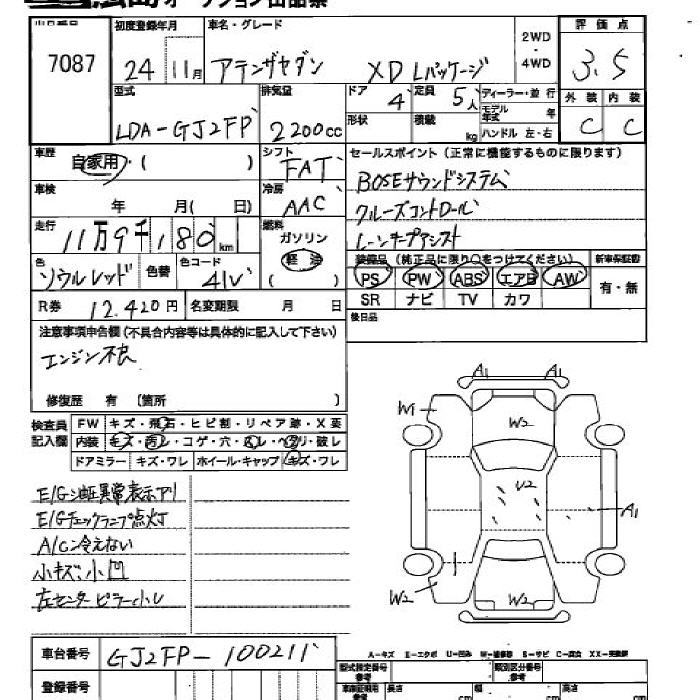 オークション出品票
7087
初度登録年月 車名・グレード 2WD ・ 4WD 評価点
24年 11月 アテンザセダン XD Lパッケージ 3.5
型式 排気量 ドア 定員 ディーラー・並行 外装 内装
LDA-GJ2FP 2200cc 4 5人 モデル年式 年 C C
形状 積載 kg ハンドル 左・右
車歴 自家用・( ) シフト FAT セールスポイント (正常に機能するものに限ります)
車検 年 月( 日) 冷房 AAC BOSEサウンドシステム
走行 11万9千180km 燃料 ガソリン クルーズコントロール
軽油 ( ) レーンキープアシスト
色 ソウルレッド 色替 色コード 41V 装備品 (純正品に限り○をつけてください) 新車保証書
PS PW ABS エアB AW 有・無
SR ナビ TV カワ
R券 12,420円 名変期限 月 日 後日品
注意事項申告欄(不具合内容等は具体的に記入して下さい)
エンジン不良
修復歴 有 〔箇所 〕
検査員記入欄 FW キズ・飛石・ヒビ割・リペア跡・X要
内装 キズ・汚レ・コゲ・穴・スレ・ヘタリ・破レ
ドアミラー キズ・ワレ ホイール・キャップ キズ・ワレ
A1 A1
W1 W2
E/G油圧異常表示アリ U2
E/Gチェックランプ点灯 A1
A/C冷えない
小キズ、小凹
左センターピラー小U W2 W2
A-キズ E-エクボ U-凹み W-補修跡 S-サビ C-腐食 XX-交換済
車台番号 GJ2FP-100211
登録番号
型式指定番号 参考 類別区分番号 参考
車庫証明用 参考 長さ cm 幅 cm 高さ cm